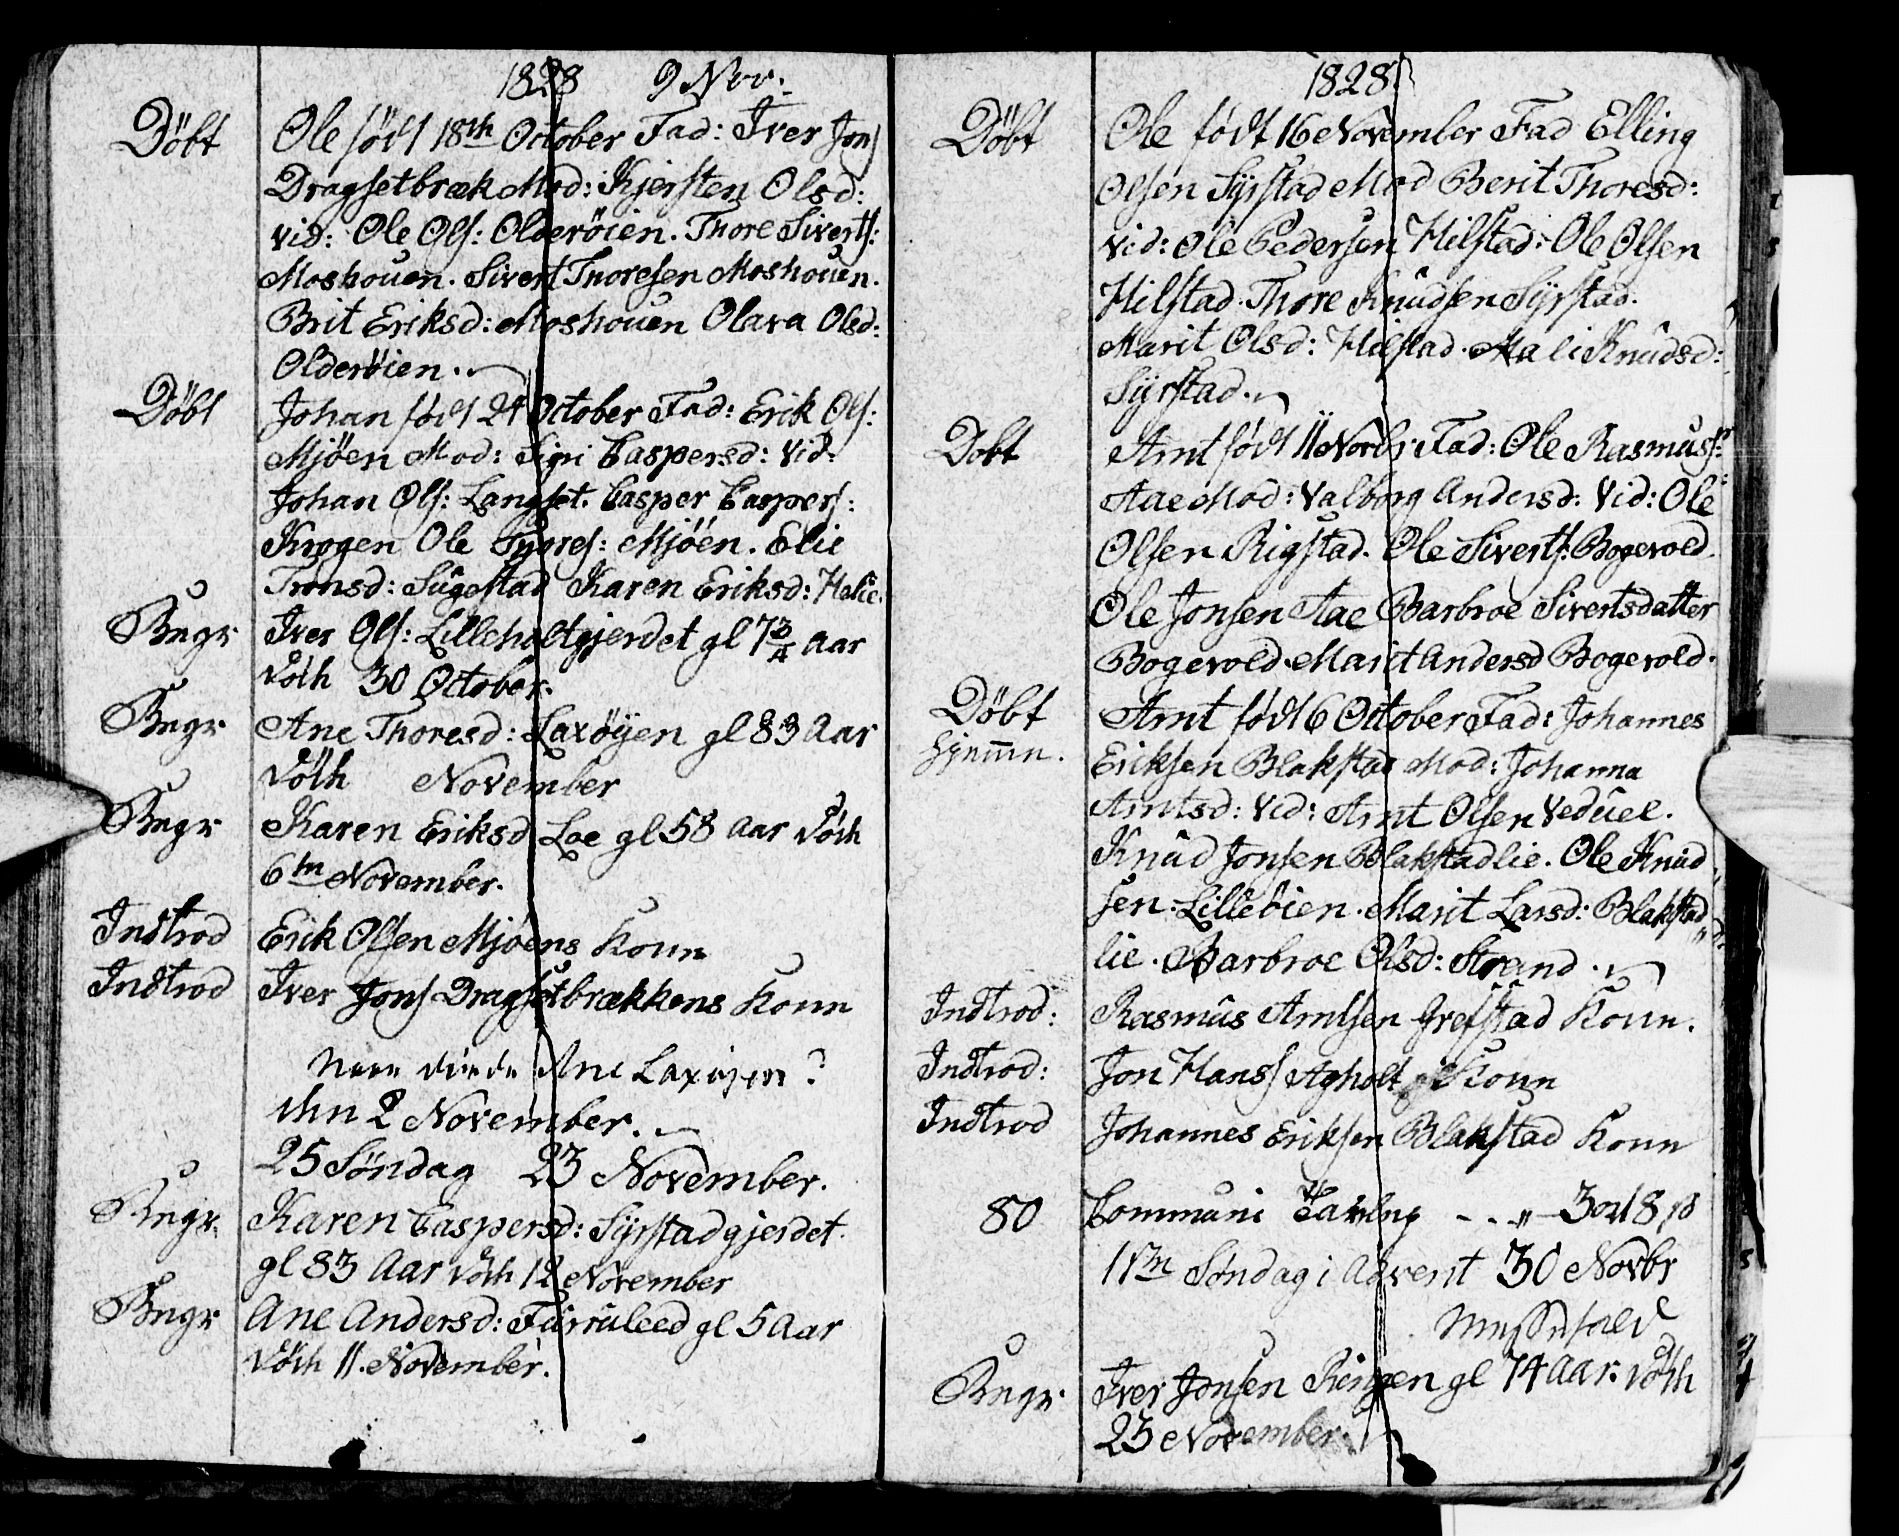 1828 9 Nov:
Döbt Ole född 18th October Fad: Iver Jons
Dragsetbræk Mod: Kjersten Olsd:
vid: Ole Ols: Olderöien. Thore Siverts:
Moshouen. Sivert Thoresen Moshouen.
Brit Eriksd: Moshouen Olava Olsd:
Olderöien.
Döbt Johan född 24 October Fad: Erik Ols:
Mjöen Mod: Siri Caspersd: Vid:
Johan Ols: Langset. Casper Caspers:
Krogen Ole Mjöen. Elie
Tronsd: Sugestad Karen Eriksd:
Begr: Iver Ols: Lilleholtgjerdet gl 7 3/4 Aar
död 30 October.
Begr Ane Thoresd: Laxöyen gl 83 Aar
död November
Begr Karen Eriksd Loe gl 58 Aar död
6te November.
Indtrod Erik Olsen Mjöens Kone
Indtrod Iver Jons Dragsetbrækkens Kone
Naar döde Ane Laxöyen?
den 2 November.
25 Söndag 23 November.
Begr: Karen Caspersd: Syrstadgjerdet.
gl 83 Aar död 12 November
Begr Ane Andersd: Furruleed gl 5 Aar
död 11. November.
1828
Döbt Ole född 16 November Fad Elling
Olsen Syrstad Mod Berit Thoresd:
vid: Ole Pedersen Hilstad. Ole Olsen
Hilstad. Thore Knudsen Syrstad.
Marit Olsd: Hilstad. Mali Knudsd:
Syrstad.
Döbt Arnt född 11 Novbr Fad: Ole Rasmuss:
Aae Mod: Valborg Andersd: Vid: Ole
Olsen Rigstad. Ole Siverts: Bogevold.
Ole Jonsen Aae Barbroe Sivertsdatter
Bogevold. Marit Andersd Bogevold.
Döbt Arnt född 6 October Fad: Johannes
hjemme. Eriksen Blakstad Mod: Johanna
Arntsd: Vid: Arnt Olsen Veduel.
Knud Jonsen Blakstadlie. Ole Knud
sen. Lilleöien. Marit Larsd: Blakstad
lie. Barbroe Olsd: Strand.
Indtrod: Rasmus Arntsen Grefstad Kone.
Indtrod: Jon Hanss Agholt Kone
Indtrod Johannes Eriksen Blakstad Kone
80 Communi 3 ort 8 s
1ste Söndag i Advent 30 Novbr
Messefald
Begr: Iver Jonsen Ringen gl 74 Aar. död
23 November.